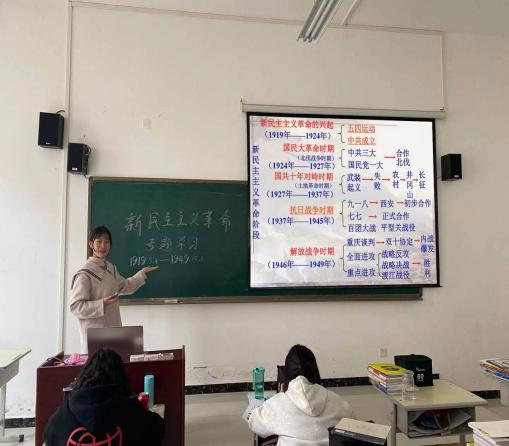 新民主主义革命
专题学习
新民主主义革命阶段
新民主主义革命的兴起
（1919年——1924年）
五四运动
中共成立
国民大革命时期
（北伐战争时期）
（1924年——1927年）
中共三大
国民党一大
合作
北伐
国共十年对峙时期
（土地革命时期）
（1927年——1937年）
武装起义
失败
农村
井冈山
长征
抗日战争时期
（1937年——1945年）
九一八 西安 初步合作
七七 正式合作
百团大战 平型关战役
解放战争时期
（1946年——1949年）
重庆谈判 双十协定 内战爆发
全面进攻
重点进攻
战略反攻
战略决战
渡江战役
胜利